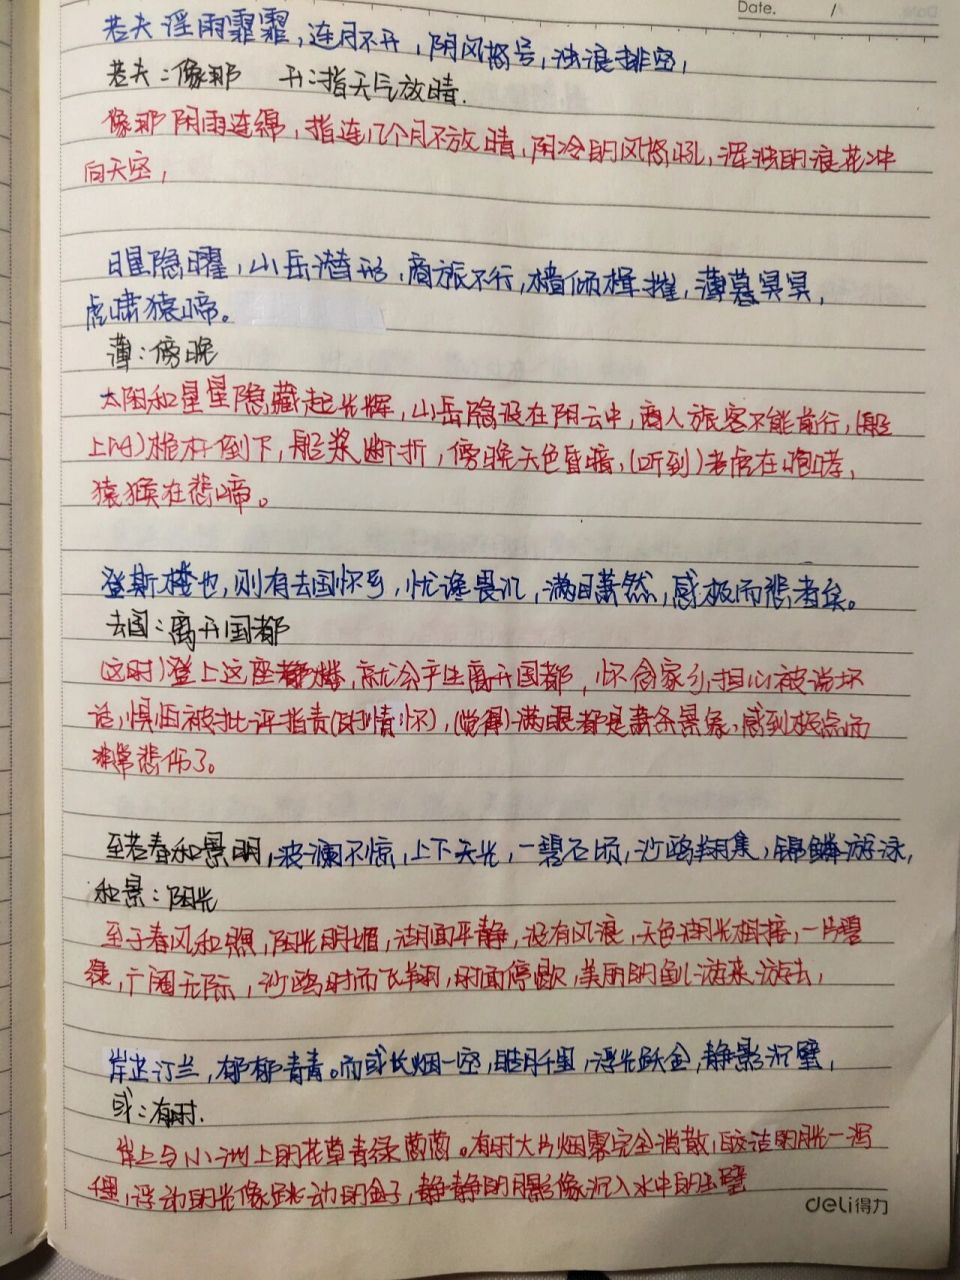 Date. /
若夫淫雨霏霏,连月不开,阴风怒号,浊浪排空,
若夫:像那 开:指天气放晴.
像那阴雨连绵,指连几个月不放晴,阴冷的风怒吼,浑浊的浪花冲
向天空,
日星隐曜,山岳潜形,商旅不行,樯倾楫摧,薄暮冥冥,
虎啸猿啼。
薄:傍晚
太阳和星星隐藏起光辉,山岳隐没在阴云中,商人旅客不能前行,(船
上的)桅杆倒下,船桨断折,傍晚天色昏暗,(听到)老虎在咆哮,
猿猴在悲啼。
登斯楼也,则有去国怀乡,忧谗畏讥,满目萧然,感极而悲者矣。
去国:离开国都
(这时)登上这座楼,就会产生离开国都,怀念家乡,担心被说坏
话,惧怕被批评指责(的情怀),(觉得)满眼都是萧条景象,感到极点而
非常悲伤了。
至若春和景明,波澜不惊,上下天光,一碧万顷,沙鸥翔集,锦鳞游泳,
和景:阳光
至于春风和煦,阳光明媚,湖面平静,没有风浪,天色湖光相接,一片碧
绿,广阔无际,沙鸥时而飞翔,时而停歇,美丽的鱼游来游去,
岸芷汀兰,郁郁青青。而或长烟一空,皓月千里,浮光跃金,静影沉璧,
或:有时.
岸上与小洲上的花草青绿茵茵。有时大片烟雾完全消散,皎洁的月光一泻
千里,浮动的光像跳动的金子,静静的月影像沉入水中的玉璧
deli得力